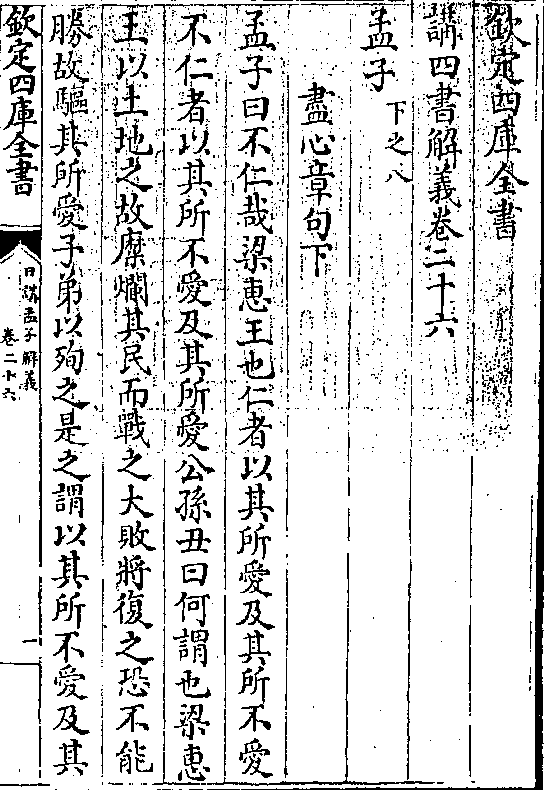 欽定四庫全書
講四書解義卷二十六
孟子下之八
盡心章句下
孟子曰不仁哉梁惠王也仁者以其所愛及其所不愛
不仁者以其所不愛及其所愛公孫丑曰何謂也梁惠
王以土地之故糜爛其民而戰之大敗將復之恐不能
勝故驅其所愛子弟以殉之是之謂以其所不愛及其
欽定四庫全書
日講孟子解義
卷二十六
一